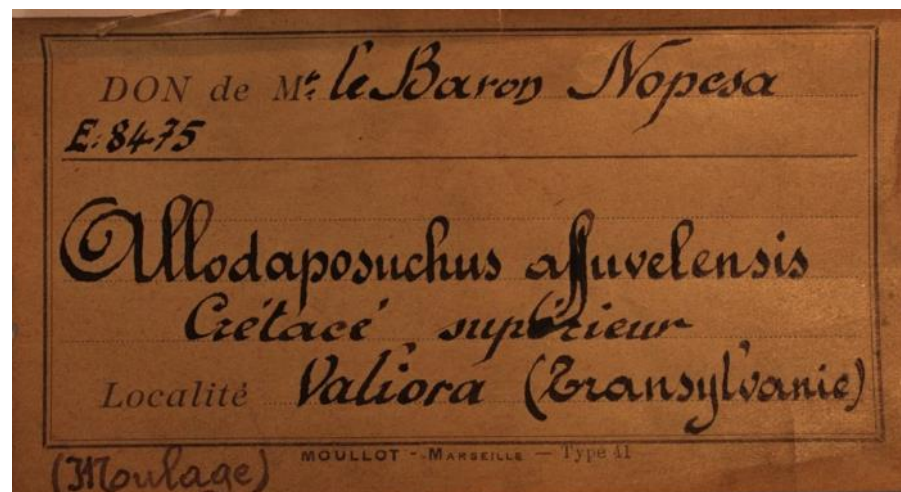 DON de Mr. le Baron Nopcsa
E. 8475
Allodaposuchus affuvelensis
Crétacé supérieur
Localité Valiora (Transylvanie)
(Moulage)
MOULLOT - MARSEILLE — Type 41